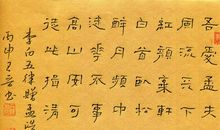 吾愛孟夫子
風流天下聞
紅顏棄軒冕
白首臥松雲
醉月頻中聖
迷花不事君
高山安可仰
徒此揖清芬
李白五律贈孟浩然
丙申